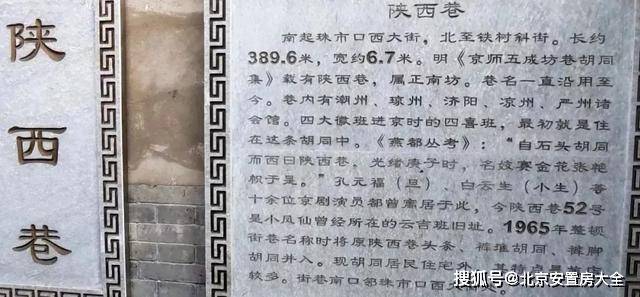 陕西巷
陕西巷
南起珠市口西大街，北至铁树斜街。长约
389.6米，宽约6.7米。明《京师五城坊巷胡同
集》载有陕西巷，属正南坊。巷名一直沿用至
今。巷内有潮州、琼州、济阳、凉州、严州诸
会馆。四大徽班进京时的四喜班，最初就是住
在这条胡同中。《燕都丛考》：“自石头胡同
而西曰陕西巷，光绪庚子时，名妓赛金花张艳
帜于是。”孔元福（旦）、白云生（小生）等
十余位京剧演员都曾寓居于此，今陕西巷52号
是小凤仙曾经所在的云吉班旧址。1965年整顿
街巷名称时将原陕西巷头条、裤堆胡同、裤脚
胡同并入。现胡同居民住宅外，其
较多。街巷南口邻珠市口西大
搜狐号@北京安置房大全